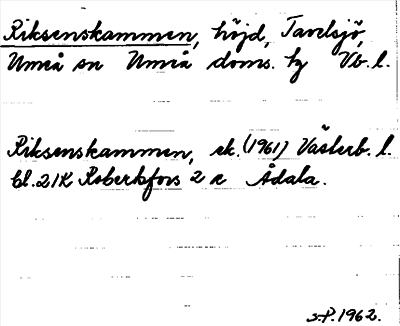 Riksenskammen, höjd, Tavelsjö,
Umeå sn Umeå doms. hy Vb. l.
Riksenskammen, ek. (1961) Västerb. l.
bl. 21K Robertsfors 2 c Ådala.
S.P. 1962.